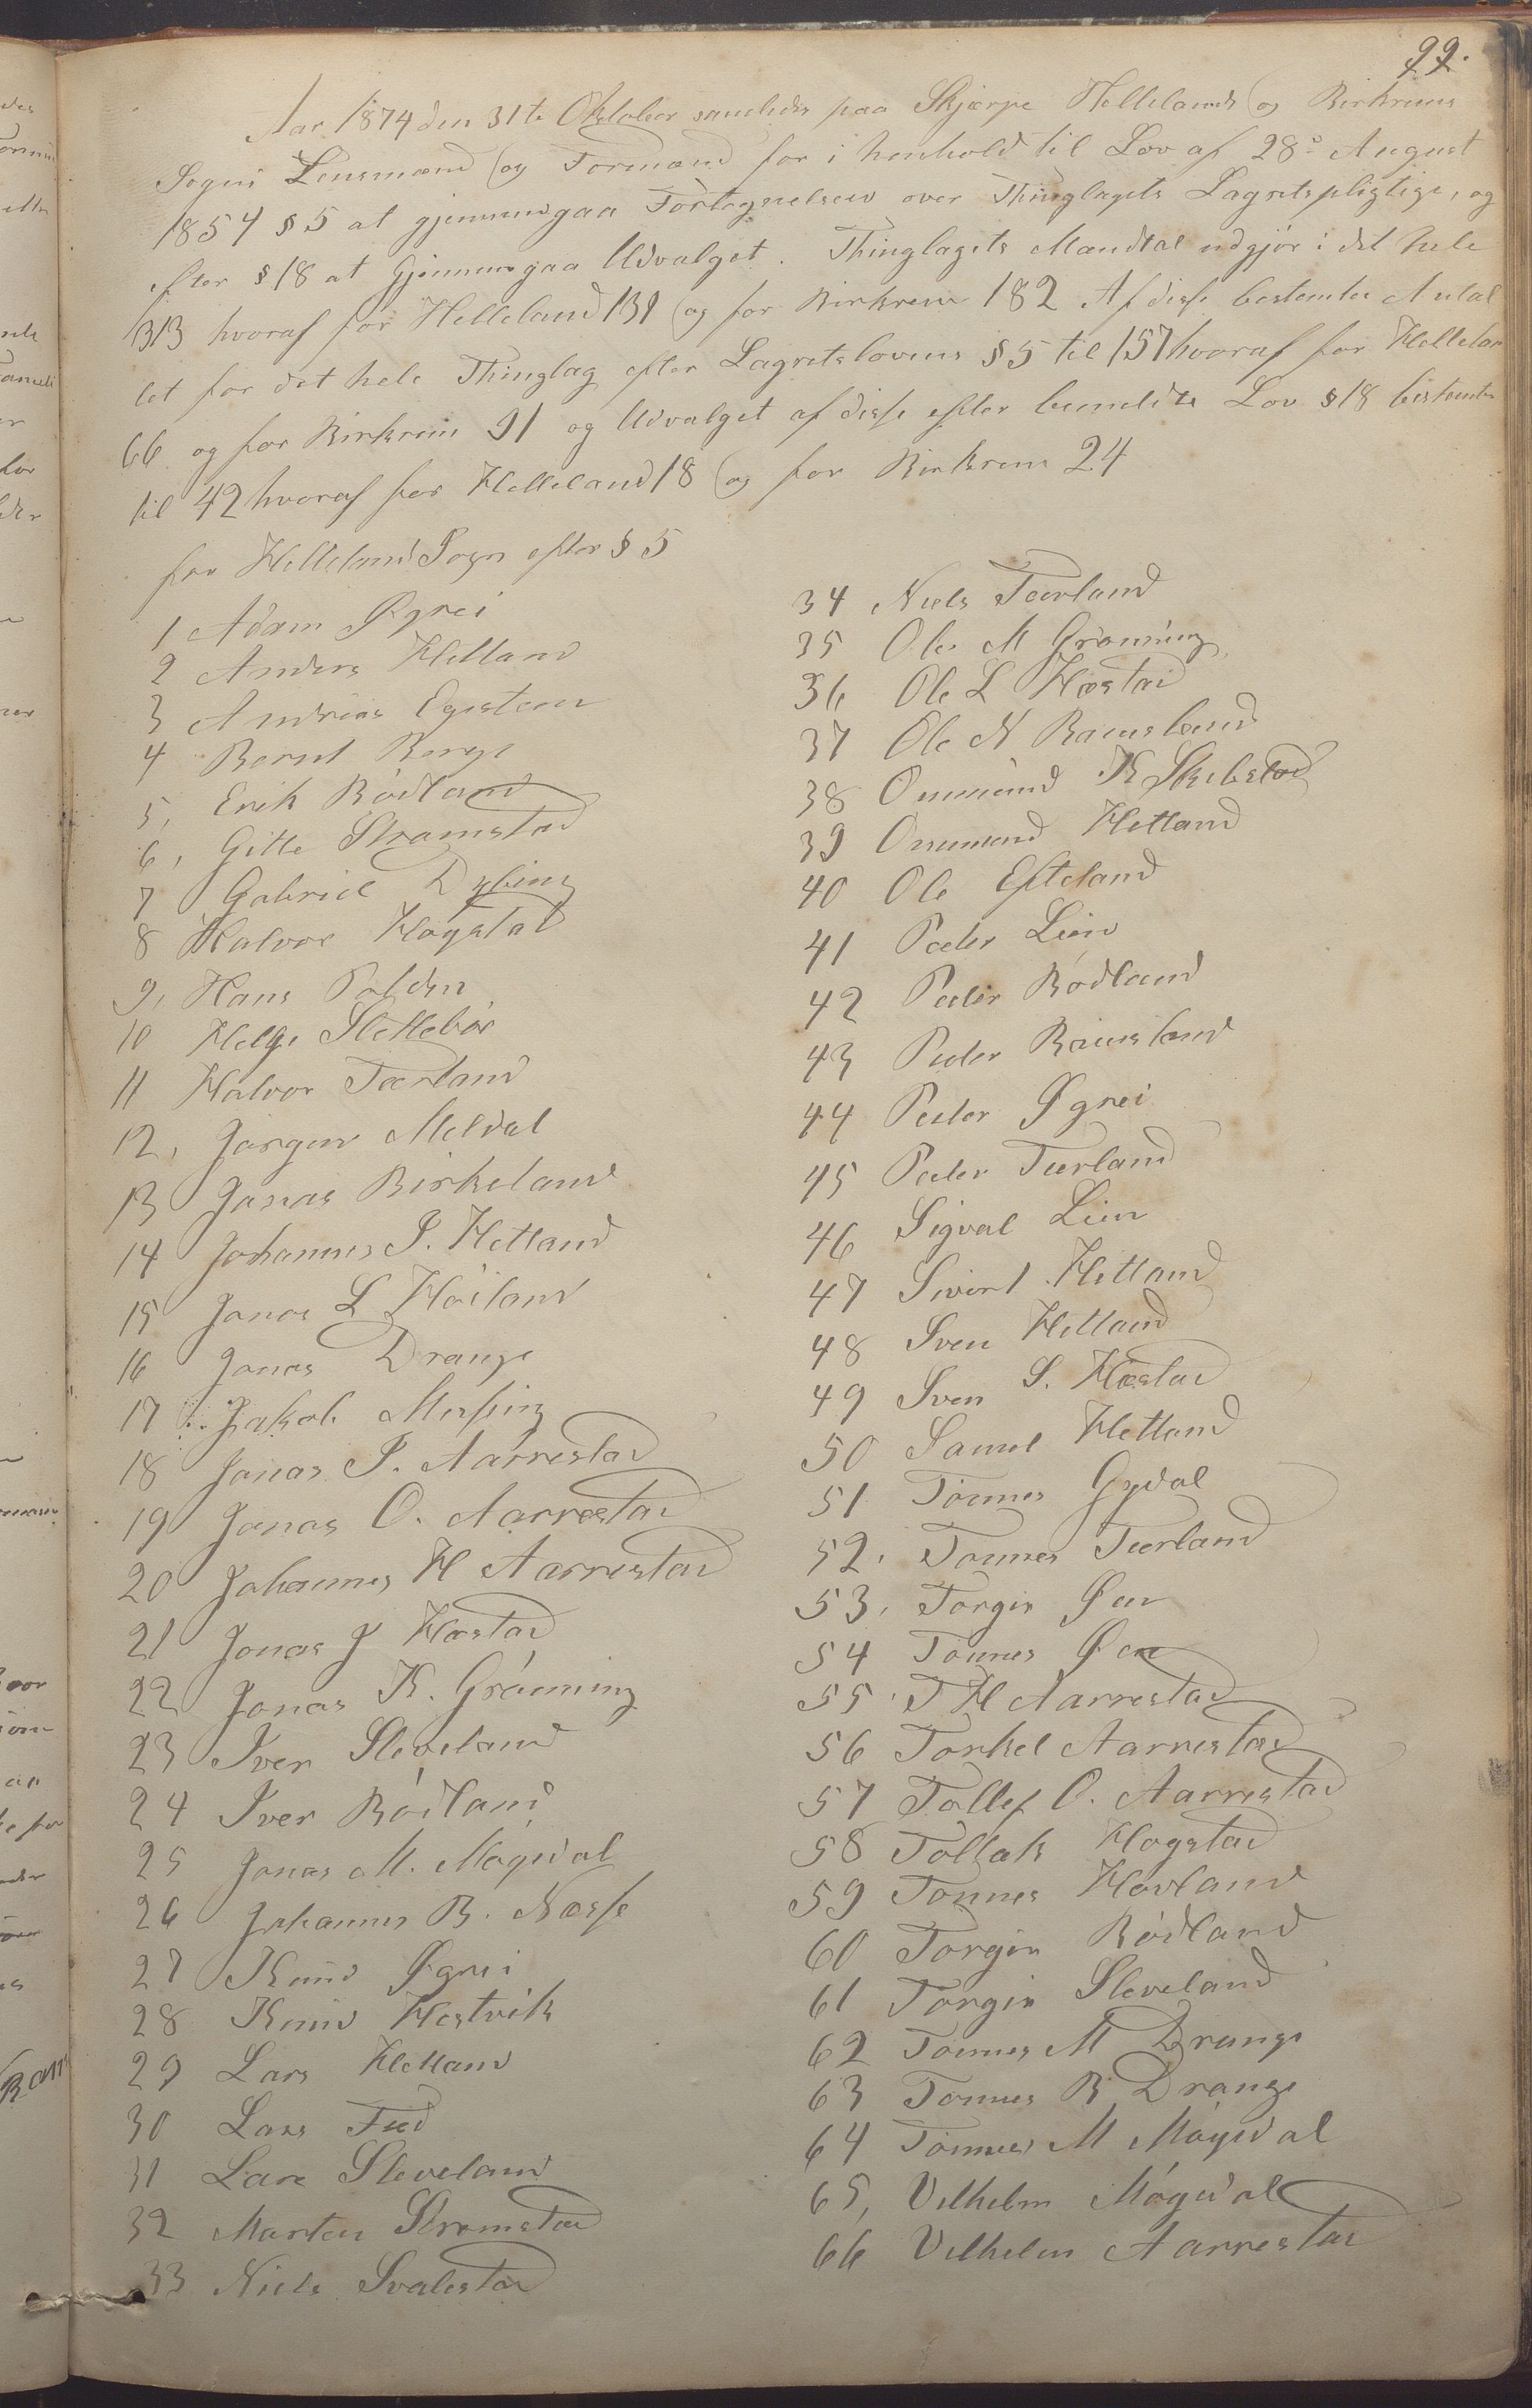 99.
Aar 1874 den 31te Oktober samledes paa Skjærpe Hellelands og Birkrems
Sogns Lensmænd og Formænd for i henhold til Lov af 28de August
1854 § 5 at gjennemgaa Fortegnelsen over Thinglagets Lagretspligtige, og
efter § 18 at Gjennemgaa Udvalget. Thinglagets Mandtal udgjør i det hele
313 hvoraf for Helleland 131 og for Birkrem 182 Af disse bestemtes Antal
let for det hele Thinglag efter Lagretslovens § 5 til 157 hvoraf for Hellelan
66 og for Birkrem 91 og Udvalget af disse efter bemeldte Lov § 18 bestemtes
til 42 hvoraf for Helleland 18 og for Birkrem 24
for Helleland Sogn efter § 5
1 Adam Øgrei
2 Anders Hetland
3 Andreas Egesteen
4 Bernt Berge
5, Erik Rødland
6, Gitle Strømstad
7 Gabriel Dybing
8 Halvor Høgstad
9, Hans Polden
10 Helge Slettebø
11 Halvor Tærland
12, Jørgen Meldal
13 Jonas Birkeland
14 Johannes P. Hetland
15 Jonas L Høiland
16 Jonas Drange
17 Jakob Messing
18 Jonas P. Aarrestad
19 Jonas O. Aarrestad
20 Johannes H Aarrestad
21 Jonas J Hæstad
22 Jonas K. Grøning
23 Iver Sleveland
24 Iver Rødland
25 Jonas M. Møgedal
26 Johannes B. Næsse
27 Knud Øgrei
28 Knud Hestvik
29 Lars Hetland
30 Lars Fed
31 Lars Sleveland
32 Morten Strømstad
33 Niels Svalestad
34 Niels Tærland
35 Ole M Grøning
36 Ole L Hæstad
37 Ole N Ramsland
38 Ommund K Skibstad
39 Ommund Hetland
40 Ole Efteland
41 Peder Lien
42 Peder Rødland
43 Peder Ramsland
44 Peder Øgrei
45 Peder Tærland
46 Sigval Lien
47 Sivert Hetland
48 Sven Hetland
49 Sven S. Hæstad
50 Samuel Hetland
51 Tønnes Gydal
52, Tønnes Tærland
53, Torger Øen
54 Tønnes Øen
55, T H Aarrestad
56 Torkel Aarrestad
57 Tollef O. Aarrestad
58 Tollak Høgstad
59 Tønnes Hovland
60 Torger Rødland
61 Torger Sleveland
62 Tønnes M Drange
63 Tønnes B Drange
64 Tønnes M Møgedal
65, Vilhelm Møgedal
66 Vilhelm Aarrestad